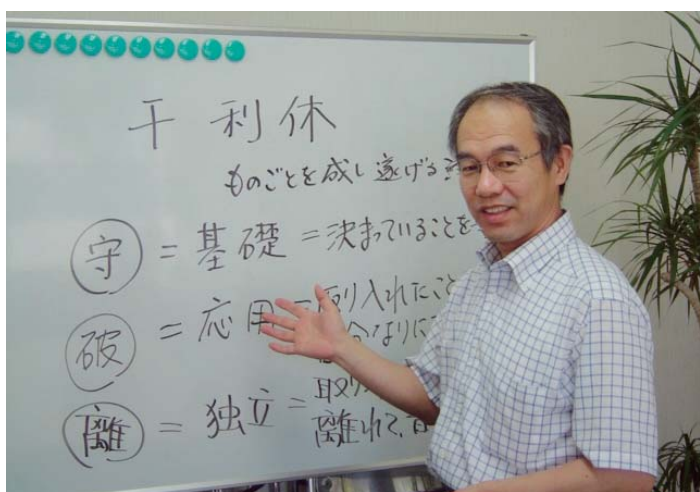 千 利 休
ものごとを成し遂げる
守 = 基礎 = 決まっていることを
破 = 応用 = 取り入れたこと
分なりに
離 = 独立 = 取り
離れて、自